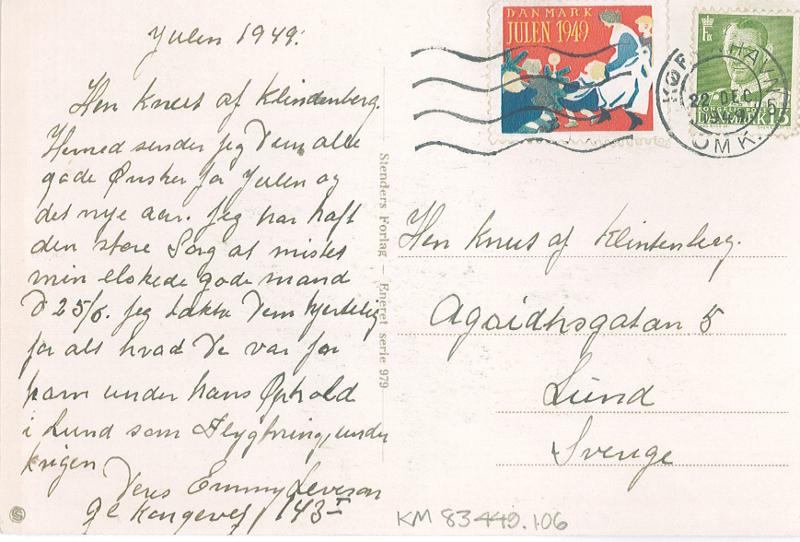 Julen 1949.
Herr Knut af Klindenberg.
Hermed sender jeg Dem alle
gode Ønsker for Julen og
det nye aar. Jeg har haft
den store Sorg at mistet
min elskede gode mand
d 25/6. Jeg takke Dem hjertelig
for alt hvad De var for
ham under hans Ophold
i Lund som Flygtning, under
krigen
Deres Emmy Leveson
Gl Kongevej 143
Stenders Forlag – Eneret serie 979
DANMARK
JULEN 1949
KØBENHAVN
22 DEC
1949
OMK.
DANMARK 15
Herr Knut af Klintenberg.
Agardhsgatan 5
Lund
Sverige
KM 83449.106